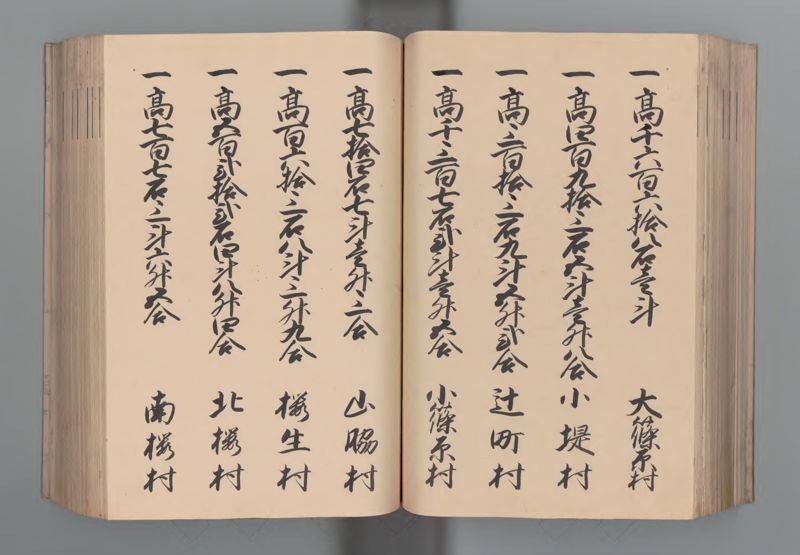 一高千六百六拾八石壱斗 大篠原村
一高四百九拾三石五斗壱升八合 小堤村
一高三百拾三石九斗五升弐合 辻町村
一高千三百七石弐斗壱升五合 小篠原村
一高七拾四石七斗壱升三合 山脇村
一高百六拾三石八斗三升九合 桜生村
一高五百弐拾弐石四斗八升四合 北桜村
一高七百七石三斗六升五合 南桜村